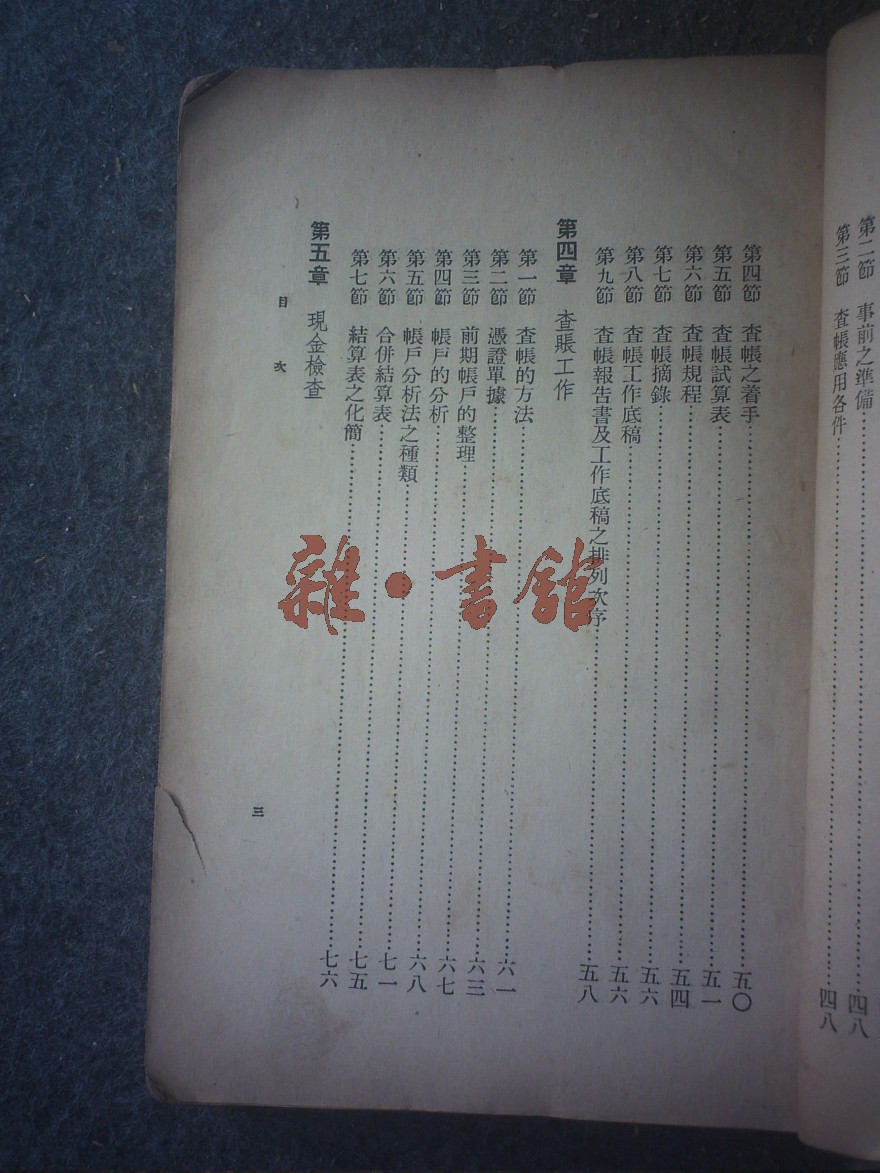 第二節 事前之準備……四八
第三節 查帳應用各件……四八
第四節 查帳之着手……五〇
第五節 查帳試算表……五一
第六節 查帳規程……五四
第七節 查帳摘錄……五六
第八節 查帳工作底稿……五六
第九節 查帳報告書及工作底稿之排列次序……五八
第四章 查賬工作
第一節 查帳的方法……六一
第二節 憑證單據……六三
第三節 前期帳戶的整理……六七
第四節 帳戶的分析……六八
第五節 帳戶分析法之種類……七一
第六節 合併結算表……七五
第七節 結算表之化簡……七六
第五章 現金檢查
目次
三
雜·書館